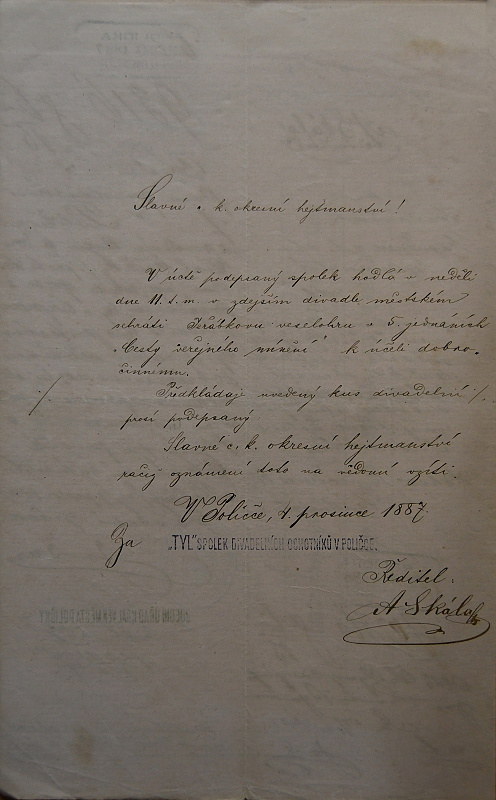 Slavné c. k. okresní hejtmanství!
V úctě podepsaný spolek hodlá v neděli
dne 11. t. m. v zdejším divadle městském
sehráti Jeřábkovu veselohru v 5. jednáních
„Cesty veřejného mínění" k účeli dobro-
činnému.
Předkládaje uvedený kus divadelní ./.
./.
prosí podepsaný
Slavné c. k. okresní hejtmanství
račiž oznámení toto na vědomí vzíti.
V Poličce, 4. prosince 1887.
Za „TYL" SPOLEK DIVADELNÍCH OCHOTNÍKŮ V POLIČCE.
Ředitel:
A Skála